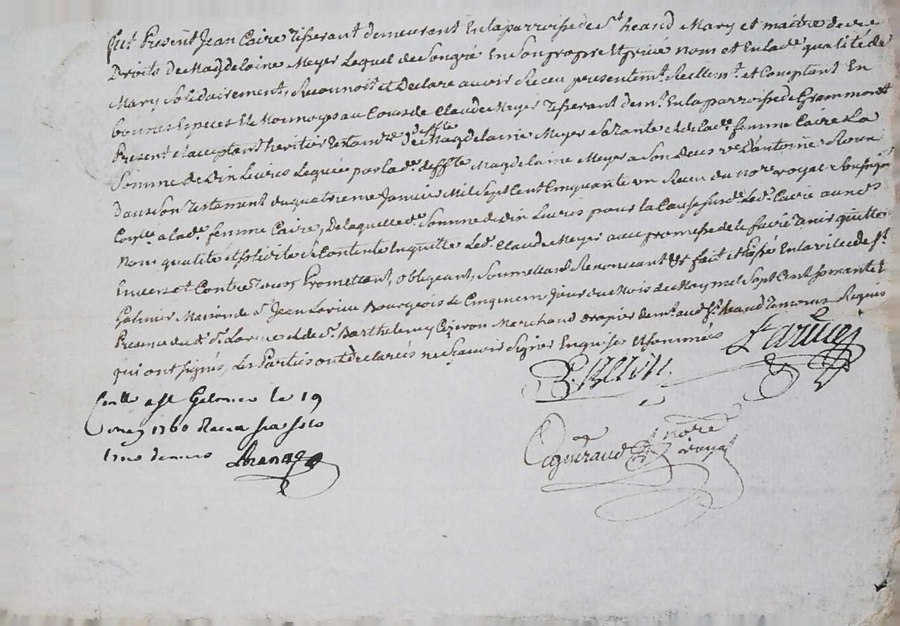 fut Present Jean Caire Tisserant demeurant En la parroisse de St heand Mary et maitre des
Droits de Magdelaine Meyer Lequel de son gré En son propre et privé nom et En lad. qualité de
Mary Solidairement, Reconnoit et Declare avoir Receu presentemt Reellemt et Comptant En
bonnes Especes et Monnoyes au Cours de Claude Meyer Tisserant demt En la parroisse de Grammont
Present et acceptant heritier de Magdelaine Meyer Sa Tante et de lad. femme Caire La
Somme de Dix Livres Leguée par lad. deffte Magdelaine Meyer a Son Deces ve D'antoine
Dans Son Testament du quatrieme Janvier Mil Sept Cent Cinquante un Receu du nore royal Soussigné
a lad. femme Caire, De laquelle de Somme de dix Livres pour la Cause susd. Led. Caire aux
Nom qualité et Solidité Se Contente En quitte Led. Claude Meyer avec promesse de le faire Tenir quitter
Envers et Contre Tous Promettant, obligeant, Soumettant Renoncant &c fait et Passé En la ville de St
Galmier Maison de Sr Jean Larive Bourgeois Le Cinquiem Jour du Mois de May mil Sept Cent Soixante Et
Presence dud. Sr et de Sr Barthelemy Cizeron Marchand drapier demt aud. St heand Temoins Requis
qui ont Signés, Les Parties ont declarés ne Scavoir Signer Enquises et Sommées
Larive
B. Cizeron
Conllé a St Galmier le 19
may 1760 Receu
nore
royal